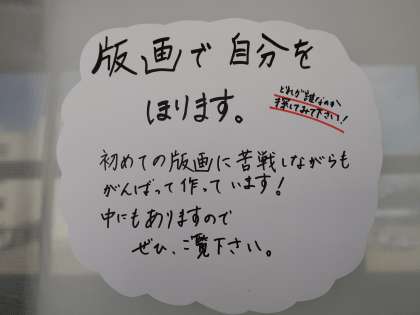 版画で自分を
ほります。
どれが誰なのか
探してみて下さい!
初めての版画に苦戦しながらも
がんばって作っています!
中にもありますので
ぜひ、ご覧下さい。